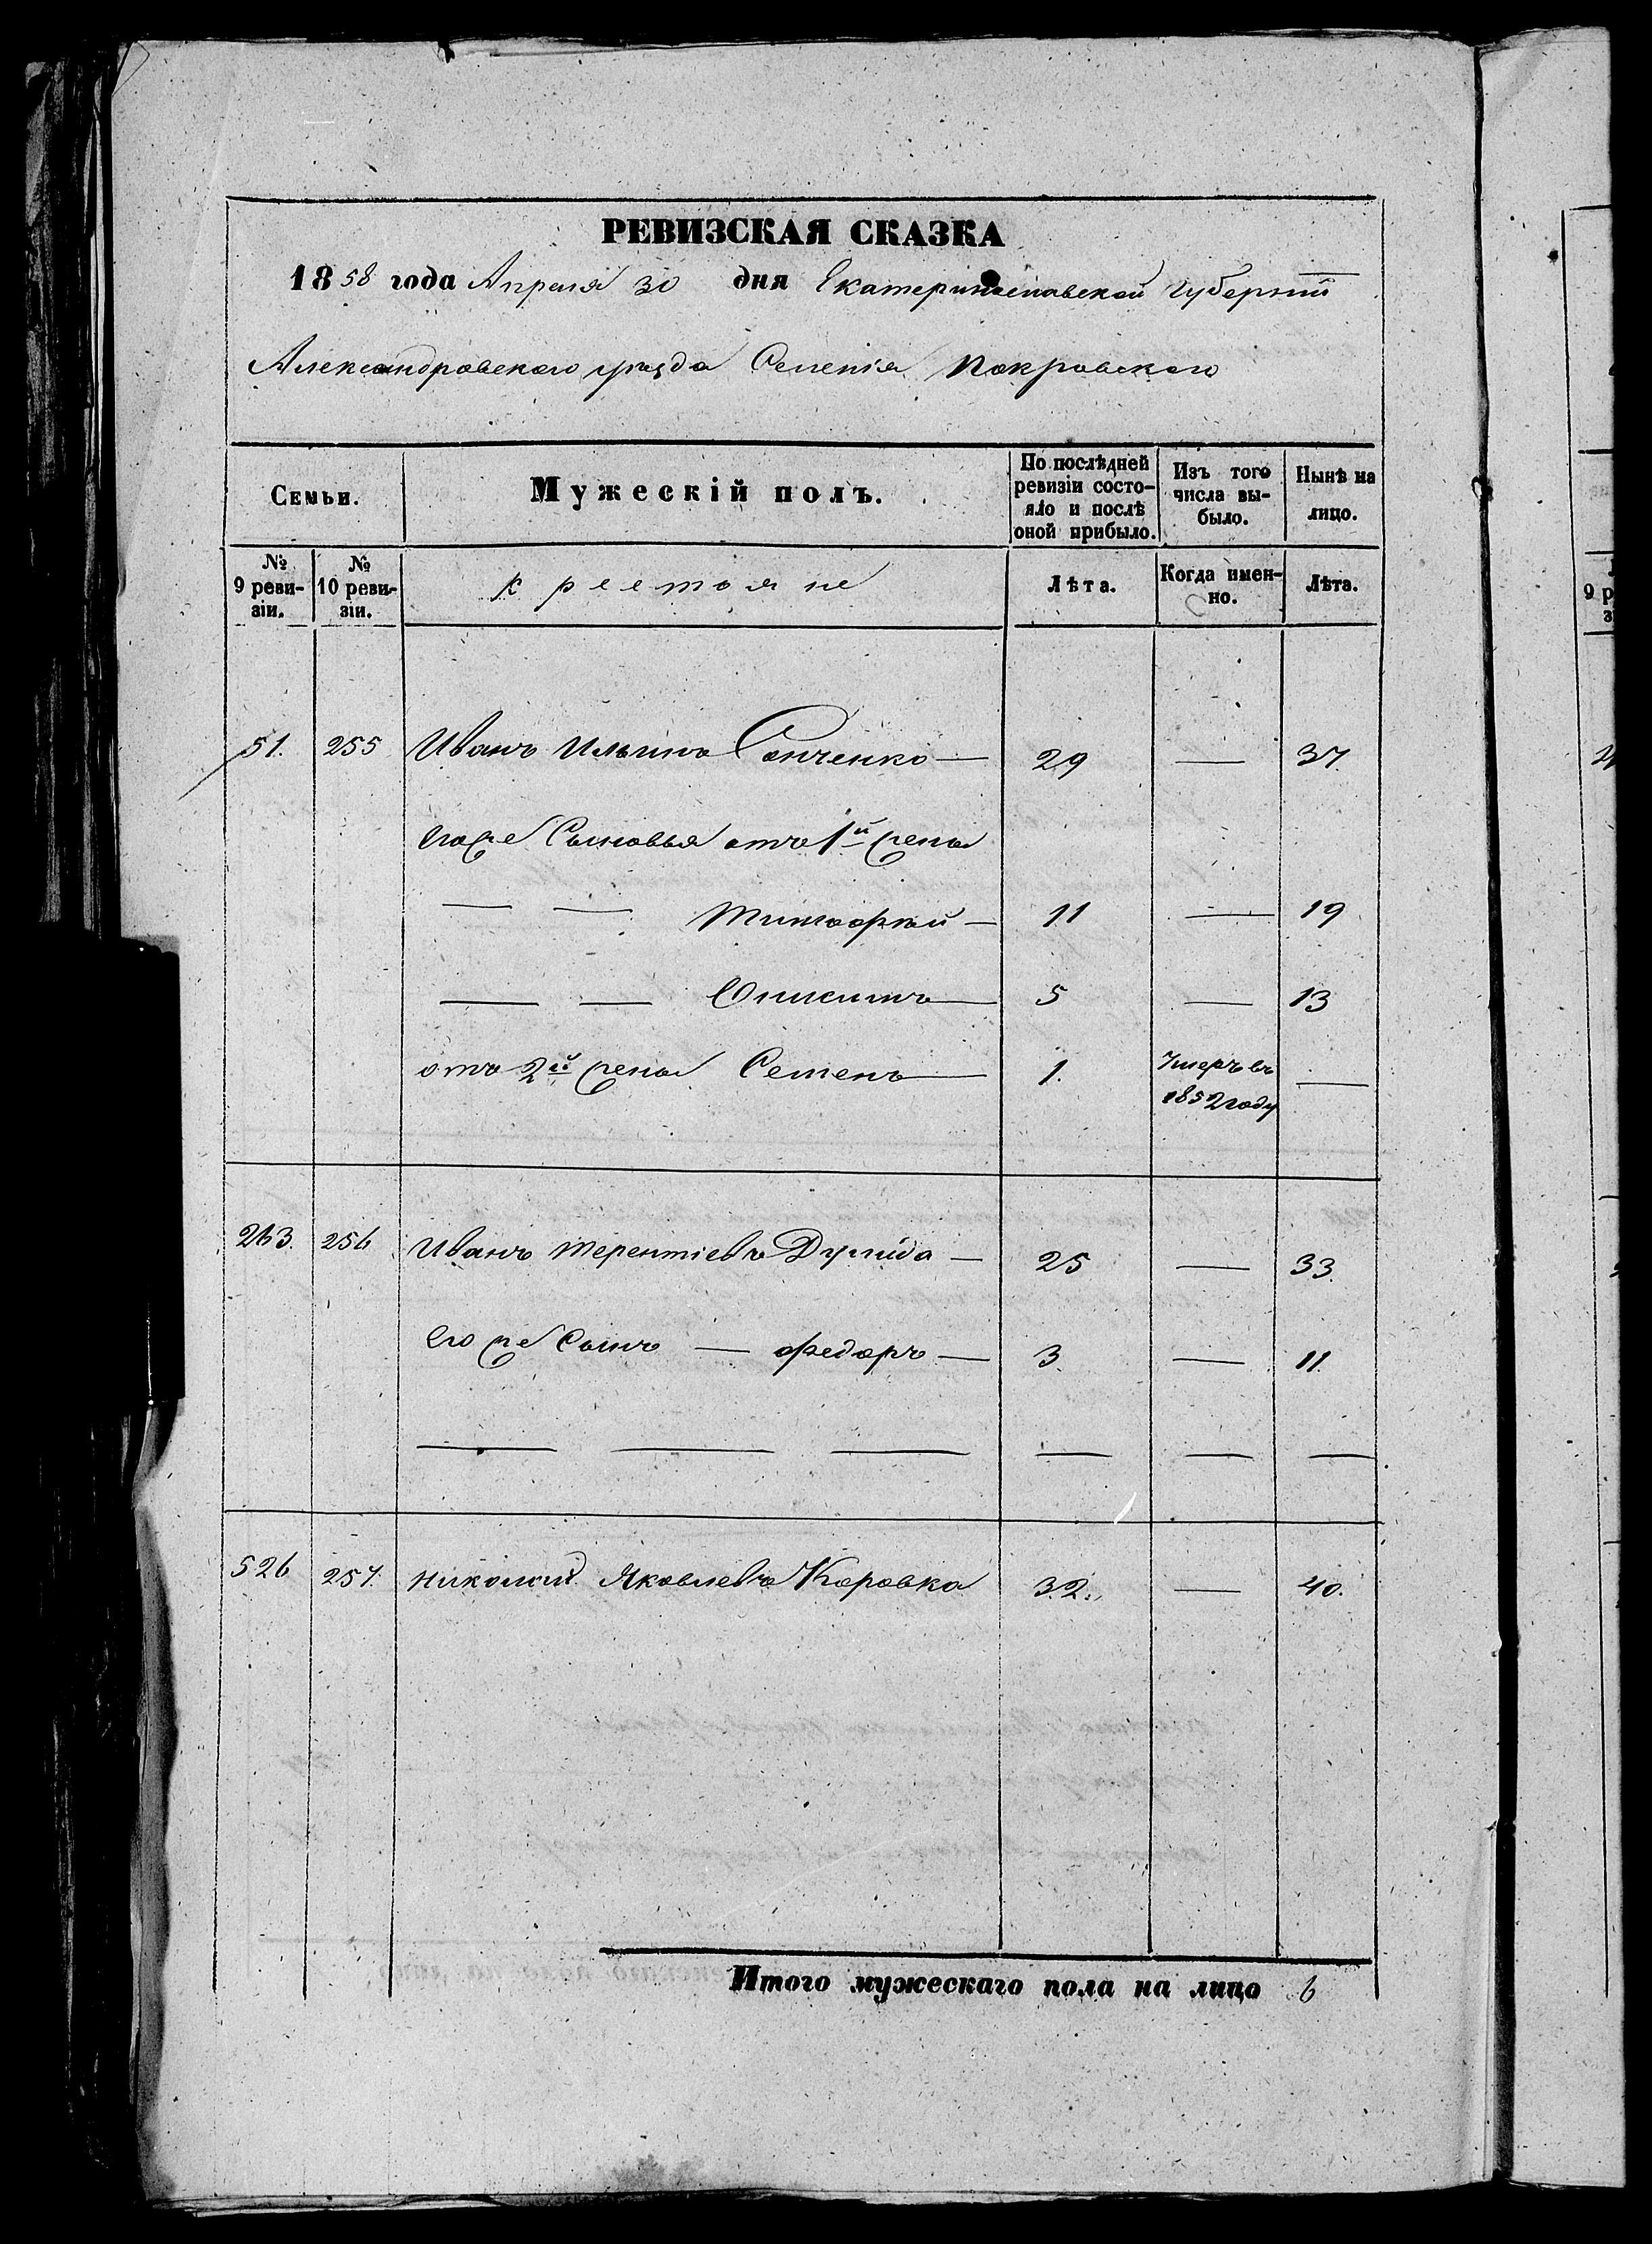 РЕВИЗСКАЯ СКАЗКА
1858 года Апреля 30 дня Екатеринославской Губерніи
Александровского уѣзда Селенія Покровского
Семьи. Мужескій полъ. По послѣдней ревизіи состояло и послѣ оной прибыло. Изъ того числа выбыло. Нынѣ на лицо.
№ 9 ревизіи. № 10 ревизіи. Крестьяне Лѣта. Когда именно. Лѣта.
51. 255 Иванъ Ильинъ Сенченко — 29 — 37.
Его же Сыновья отъ 1й жены
— — Тимофѣй — 11 — 19
— — Онисимъ — 5 — 13
отъ 2й жены Семенъ — 1. Умеръ въ 1852 году —
263. 256 Иванъ Терентіевъ — 25 — 33.
Его же Сынъ — Федоръ — 3. — 11.
— — — — — —
526 257. Николай Яковлевъ Коровка 32. — 40.
Итого мужескаго пола на лицо 6
9 р